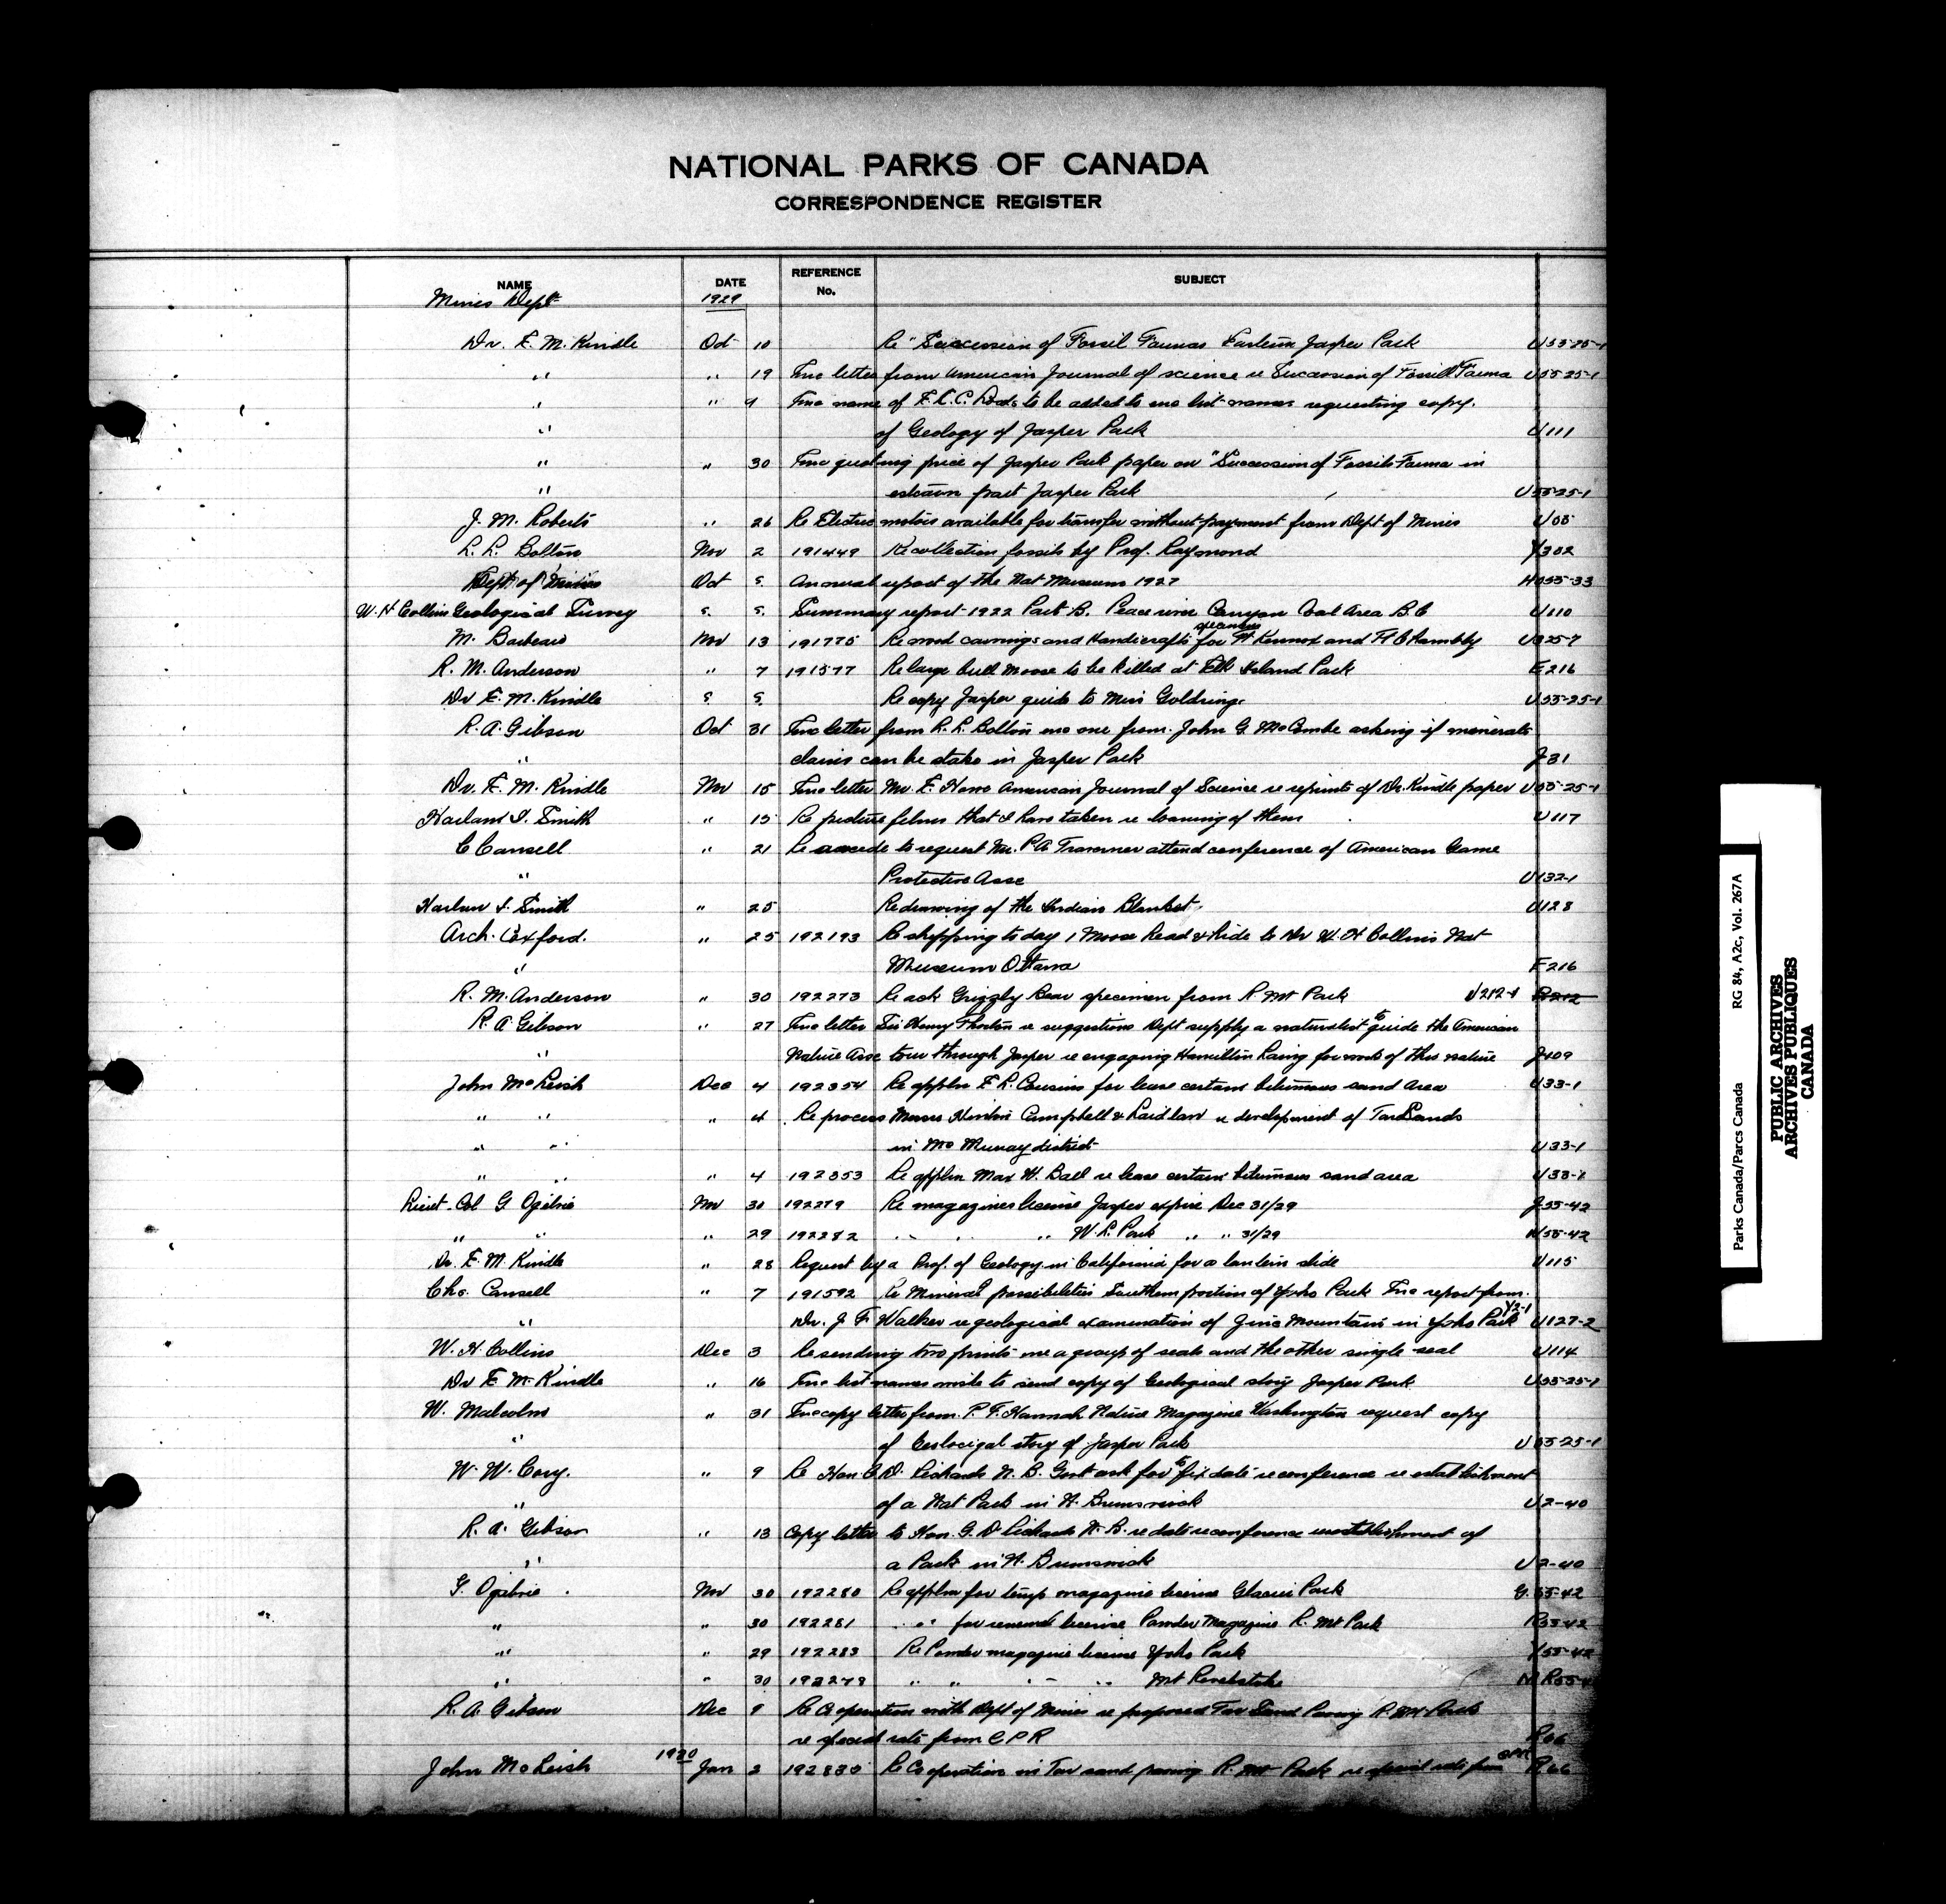 NATIONAL PARKS OF CANADA
CORRESPONDENCE REGISTER
NAME DATE REFERENCE No. SUBJECT
Mines Dept 1929
Dr. E. M. Kindle Oct 10 Re "Succession of Fossil Faunas Eastern Jasper Park U55-25-1
" " 19 Enc letter from American Journal of science re Succession of Fossil Fauna U55-25-1
" " 9 Enc name of E. L. C. to be added to enc list names requesting copy.
" of Geology of Jasper Park U111
" " 30 Enc quoting price of Jasper Park paper on "Succession of Fossils Fauna in
" eastern part Jasper Park U55-25-1
J. M. Roberts " 26 Re Electric motors available for transfer without payment from Dept of Mines U55
L. L. Bolton Nov 2 191449 Re collection fossils by Prof. Raymond Y302
Dept of Mines Oct 5 Annual report of the Nat Museum 1927 H055-33
W. H Collins Geological Survey Summary report 1922 Part B. Peace river Canyon Coal Area B.C U110
M. Barbeau Nov 13 191775 Re wood carvings and Handicrafts specimens for Ft Lennox and Ft Chambly U325-7
R. M. Anderson " 7 191577 Re large bull moose to be killed at Elk Island Park E216
Dr E. M. Kindle Re copy Jasper guide to Miss Goldring. U55-25-1
R. A. Gibson Oct 31 Enc letter from L. L. Bolton enc one from John G. McCombe asking if minerals
" claims can be stake in Jasper Park J31
Dr. E. M. Kindle Nov 15 Enc letter Mr. E. Howe American Journal of Science re reprints of Dr. Kindle paper U55-25-1
Harlan I. Smith " 15 Re picture films that I have taken re loaning of them U117
C Camsell " 21 Re accede to request Mr. P A Taverner attend conference of American Game
" Protective Assc U132-1
Harlan I. Smith " 25 Re drawing of the Indian Blanket U128
Arch. Coxford. " 25 192193 Re shipping to day 1 Moose Head & Hide to Dr W. H Collins Nat
" Museum Ottawa E216
R. M. Anderson " 30 192273 Re ack Grizzly Bear specimen from R. Mt Park U212-1 R212
R. A. Gibson " 27 Enc letter Sir Henry Thornton re suggestions Dept supply a naturalist to guide the American
" Nature Assc tour through Jasper re engaging Hamilton Laing for work of this nature J109
John McLeish Dec 4 192354 Re appln E. L. Cousins for lease certain bitumous sand area U33-1
" " " 4 Re process Messrs Hinton Campbell & Laidlaw re development of Tar Sands
" " in Mc Murray district U33-1
" " " 4 192353 Re appln Max W. Ball re lease certain bitumous sand area U33-1
Lieut. Col G. Ogilvie Nov 30 192279 Re magazines license Jasper expire Dec 31/29 J55-42
" " " 29 192282 " " " W. L. Park " " 31/29 W55-42
Dr. E. M. Kindle " 28 Request by a Prof. of Geology in California for a lantern slide U115
Chs. Camsell " 7 191592 Re Mineral possibilities Southern portion of Yoho Park Enc report from
" Dr. J. F. Walker re geological examination of Mountain in Yoho Park Y2-1 U127-2
W. H. Collins Dec 3 Re sending two prints one a group of seals and the other single seal U114
Dr E. M. Kindle " 16 Enc list names wish to send copy of Geological story Jasper Park U55-25-1
W. Malcolm " 31 Enc copy letter from P. F. Hannah Nature Magazine Washington request copy
" of Geological story of Jasper Park U55-25-1
W. W. Cory. " 9 Re Hon. C. D. Richards N. B. Govt ask for to fix date re conference re establishment
" of a Nat Park in N. Brunswick U2-40
R. A. Gibson " 13 Copy letter to Hon. G. D Richards N. B. re date re conference re establishment of
" a Park in N. Brunswick U2-40
G. Ogilvie. Nov 30 192280 Re appln for temp magazine license Glacier Park G.55-42
" " 30 192281 " " for renewal license Powder Magazine R. Mt Park R55-42
" " 29 192283 Re Powder magazine license Yoho Park Y55-42
" " 30 192278 " " " " Mt Revelstoke M R55-4
R. A. Gibson Dec 9 Re Cooperation with Dept of Mines re proposed Tar Sand Paving R. Mt Park
re special rate from C P R R66
John McLeish 1930 Jan 2 192830 Re Cooperation in Tar sand paving R. Mt Park re special rate from CPR R66
Parks Canada/Parcs Canada RG 84, A2c, Vol. 267A
PUBLIC ARCHIVES
ARCHIVES PUBLIQUES
CANADA